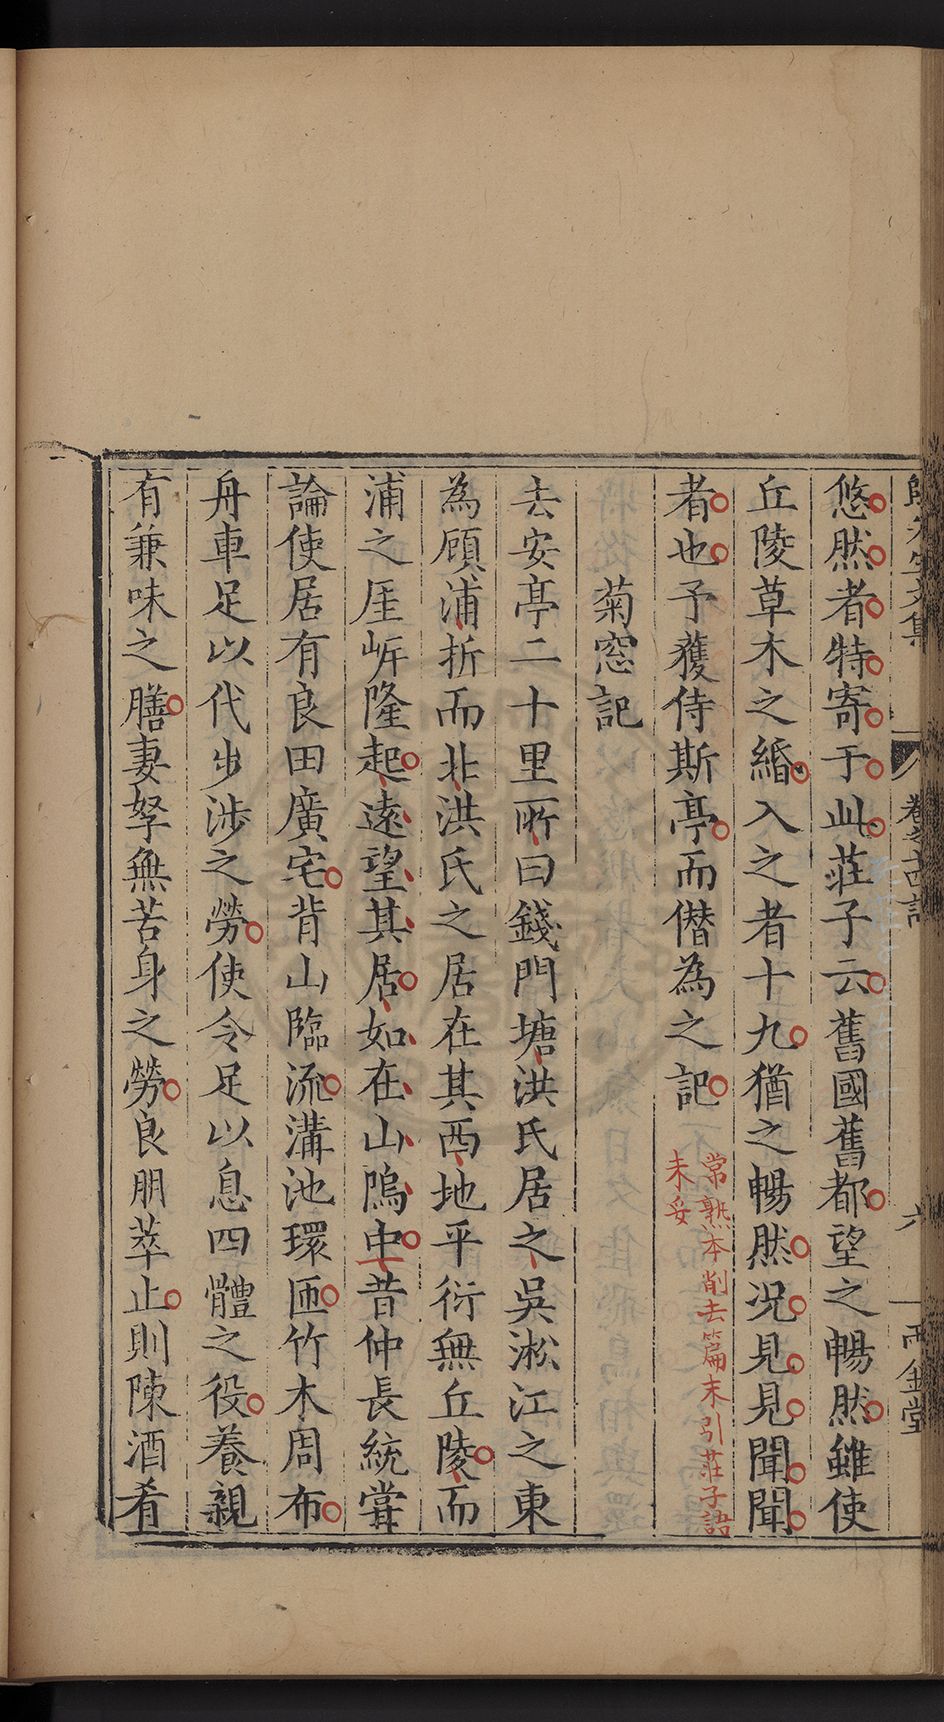 歸先生文集 卷之十四記 六 雨金堂
悠然者特寄于此莊子云舊國舊都望之暢然雖使
丘陵草木之緡入之者十九猶之暢然况見見聞聞
者也予獲侍斯亭而僭為之記
常熟本削去篇末引莊子語
未妥
菊窓記
去安亭二十里所曰錢門塘洪氏居之吳淞江之東
為顧浦折而北洪氏之居在其西地平衍無丘陵而
浦之厓㟁隆起遠望其居如在山隝中昔仲長統嘗
論使居有良田廣宅背山臨流溝池環匝竹木周布
舟車足以代步涉之勞使令足以息四體之役養親
有兼味之膳妻孥無苦身之勞良朋萃止則陳酒肴